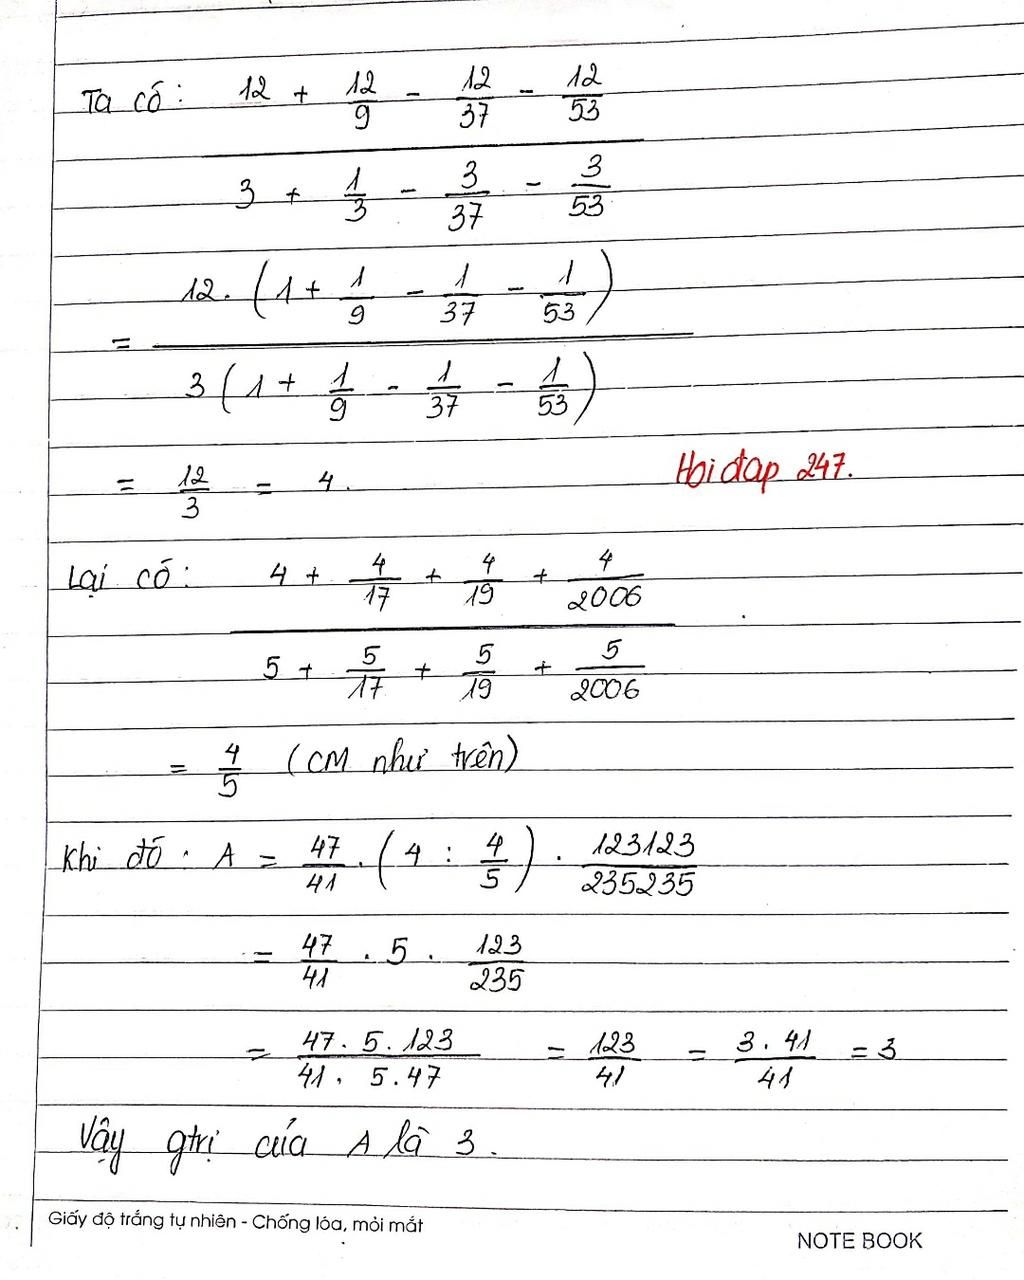 Ta có: 12 + 12/9 - 12/37 - 12/53
3 + 1/3 - 3/37 - 3/53
= 12. (1 + 1/9 - 1/37 - 1/53)
3 (1 + 1/9 - 1/37 - 1/53)
= 12/3 = 4.
Hoi đap 247.
Lại có: 4 + 4/17 + 4/19 + 4/2006
5 + 5/17 + 5/19 + 5/2006
= 4/5 (CM như trên)
Khi đó: A = 47/41 . (4 : 4/5) . 123123/235235
= 47/41 . 5 . 123/235
= 47. 5. 123/41. 5. 47 = 123/41 = 3. 41/41 = 3
Vậy gtrị của A là 3.
Giấy độ trắng tự nhiên - Chống lóa, mỏi mắt
NOTE BOOK